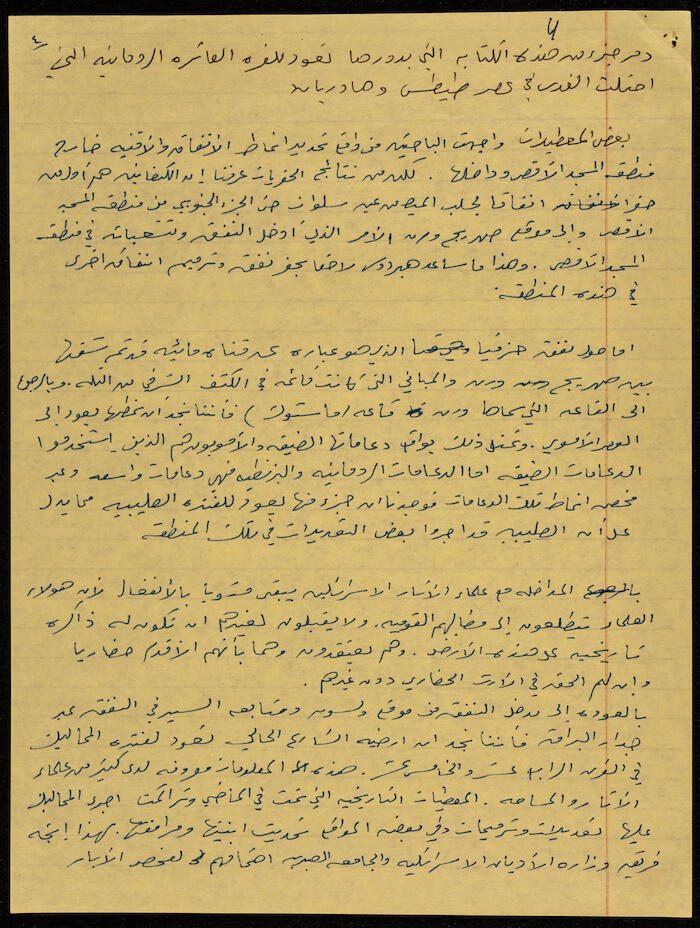 ٤
دمر جزء من هذه الكتابه التي بدورها تعود للفره العاشره الرومانيه التي
احتلت القدس في عصر طيطس وهادريان
بعض المعطيات واجهت الباحثين في واقع تحديد انماط الأنفاق والأقنيه خارج
منطقة المسجد الأقصى وداخلها . لكن من نتائج الحفريات عرفنا إن الكنعانين هم أول من
حفر انفاقا لجلب المياه من عين سلوان حتى الجزء الجنوبي من منطقة المسجد
الأقصى وإلى موقع صهريج ورن الأمر الذي أدخل النفق وتشعباته في منطقة
المسجد الأقصى . وهذا ما ساعد هيردوس لاحقا بحفر نفق وترميم انفاق اخرى
في هذه المنطقة .
اما حول نفق حزقيا الذي هو عباره عن قناه مائيه قد تم شقها
بين صهريج ورن والمباني التي كانت قائمه في الكتف الشرقي من التله . وبالرجوع
الى القاعه التي سماها ورن قاعه (ماستوك) فأننا نجد أن نمطها يعود إلى
العصر الأموي . وتمثل ذلك بواقع دعاماتها الضيقه والأمويون هم الذين استخدموا
الدعامات الضيقه اما الدعامات الرومانيه والبزنطيه فهي دعامات واسعه وعبر
فحص انماط تلك الدعامات فوجدنا ان جزء منها يعود للفتره الصليبيه مما يدل
على أن الصليبيه قد اجروا بعض التعديلات في تلك المنطقة
المداخله مع علماء الأثار الاسرائيلين يبقى مشوبا بالأنفعال لأن هولاء
العلماء يتطلعون إلى مطالبهم القوميه . ولا يقبلون لغيرهم ان تكون له ذاكره
تاريخيه على هذه الأرض . وهم يعتقدون وهما بأنهم الأقدم حضاريا
وان لهم الحق في الأرث الحضاري دون غيرهم .
بالعوده إلى مدخل النفق في موقع ولسون ومتابعه السير في النفق عبر
جدار البراق فأننا نجد ان ارضيه الشارع الحالي تعود لفتره المماليك
في القرن الرابع عشر والخامس عشر . هذه المعلومات معروفه لدى كثير من علماء
الأثار والمساحه . المعطيات التاريخيه التي تمت في الماضي وتراكمت اجرى المماليك
عليها تعديلات وترميمات وفي بعض المواقع تحديث ابنيتها ومرافقها . بهذا إتجه
فريق وزاره الأديان الاسرائيليه والجامعه العبريه لفحص الأبار